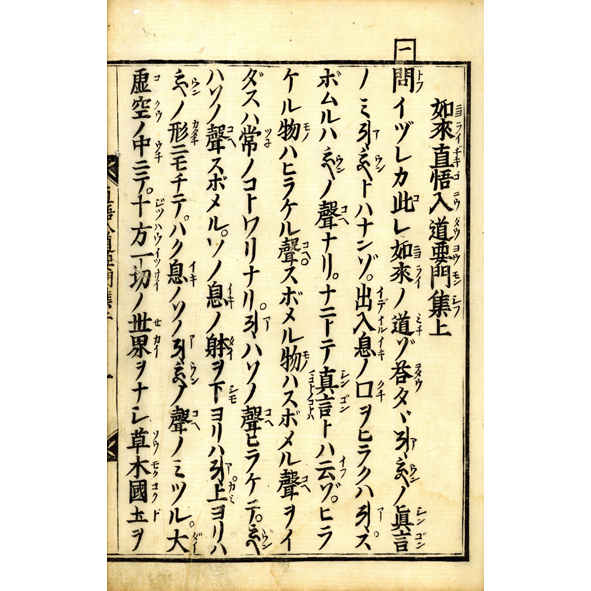 一
如來直悟入道要門集上
問イヅレカ此レ如來ノ道ゾ荅タヾ𑖀𑖮𑖳𑖽ノ真言
ノミ𑖀𑖮𑖳𑖽トハナンゾ。出入息ノ口ヲヒラクハ𑖀。ス
ボムルハ𑖮𑖳𑖽ノ聲ナリ。ナニトテ真言トハ云ゾ。ヒラ
ケル物ハヒラケル聲。スボメル物ハスボメル聲ヲイ
ダスハ常ノコトワリナリ。𑖀ハソノ聲ヒラケテ。𑖮𑖳𑖽
ハソノ聲スボメル。ソノ息ノ躰ヲ下ヨリハ𑖀上ヨリハ
𑖮𑖳𑖽ノ形ニモチテ。ハク息ノソノ𑖀𑖮𑖳𑖽ノ聲ノミツル。大
虚空ノ中ニテ。十方一切ノ世界ヲナシ草木國土ヲ